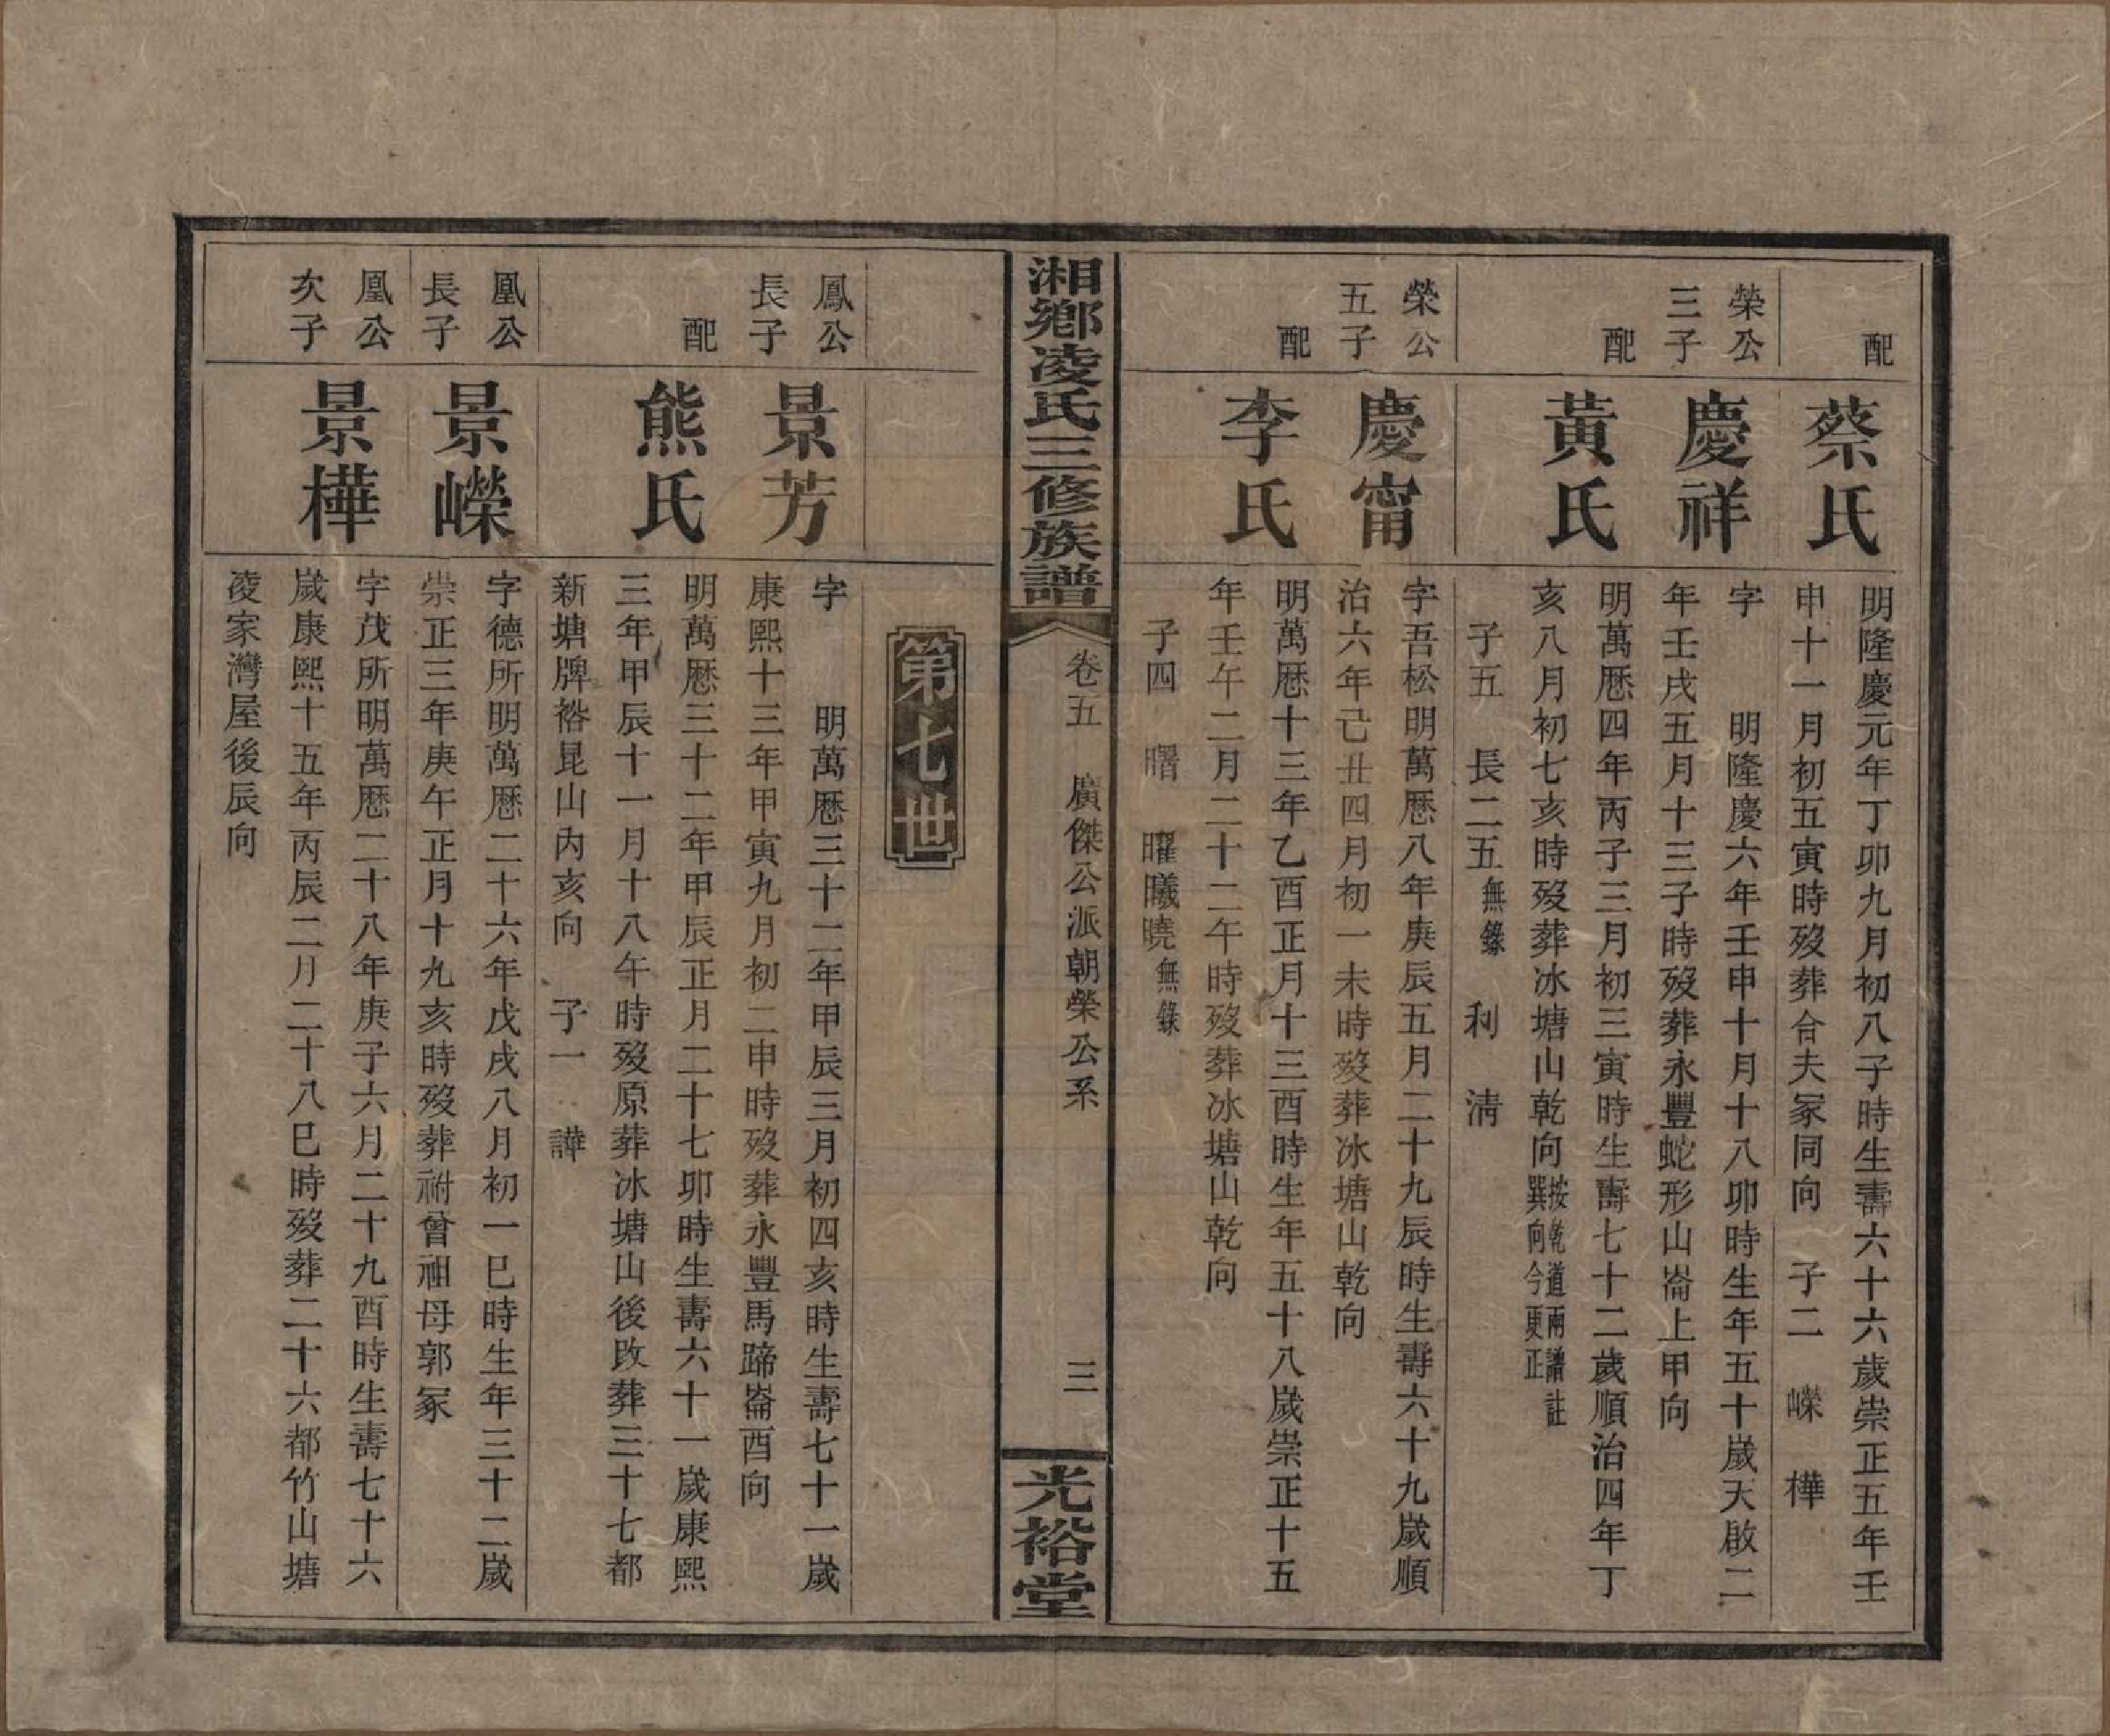 配
蔡氏
明隆慶元年丁卯九月初八子時生壽六十六歲崇正五年壬
申十一月初五寅時歿葬合夫冢同向　子二　嶸　樺
榮公
三子
慶祥
字　　明隆慶六年壬申十月十八卯時生年五十歲天啟二
年壬戌五月十三子時歿葬永豐蛇形山崙上甲向
配
黃氏
明萬厯四年丙子三月初三寅時生壽七十二歲順治四年丁
亥八月初七亥時歿葬冰塘山乾向按乾道兩譜註巽向今更正
子五　長二五無錄　利　清
榮公
五子
慶甯
字吾松明萬厯八年庚辰五月二十九辰時生壽六十九歲順
治六年己丑四月初一未時歿葬冰塘山乾向
配
李氏
明萬厯十三年乙酉正月十三酉時生年五十八歲崇正十五
年壬午二月二十二午時歿葬冰塘山乾向
子四　曙　曜曦曉無錄
湘鄉凌氏三修族譜
卷五　廣傑公派朝榮公系
三
光裕堂
第七世
鳳公
長子
景芳
字　　明萬厯三十二年甲辰三月初四亥時生壽七十一歲
康熙十三年甲寅九月初二申時歿葬永豐馬蹄崙酉向
配
熊氏
明萬厯三十二年甲辰正月二十七卯時生壽六十一歲康熙
三年甲辰十一月十八午時歿原葬冰塘山後改葬三十七都
新塘牌裕昆山內亥向　子一　譁
凰公
長子
景嶸
字德所明萬厯二十六年戊戌八月初一巳時生年三十二歲
崇正三年庚午正月十九亥時歿葬祔曾祖母郭冢
凰公
次子
景樺
字茂所明萬厯二十八年庚子六月二十九酉時生壽七十六
歲康熙十五年丙辰二月二十八巳時歿葬二十六都竹山塘
凌家灣屋後辰向